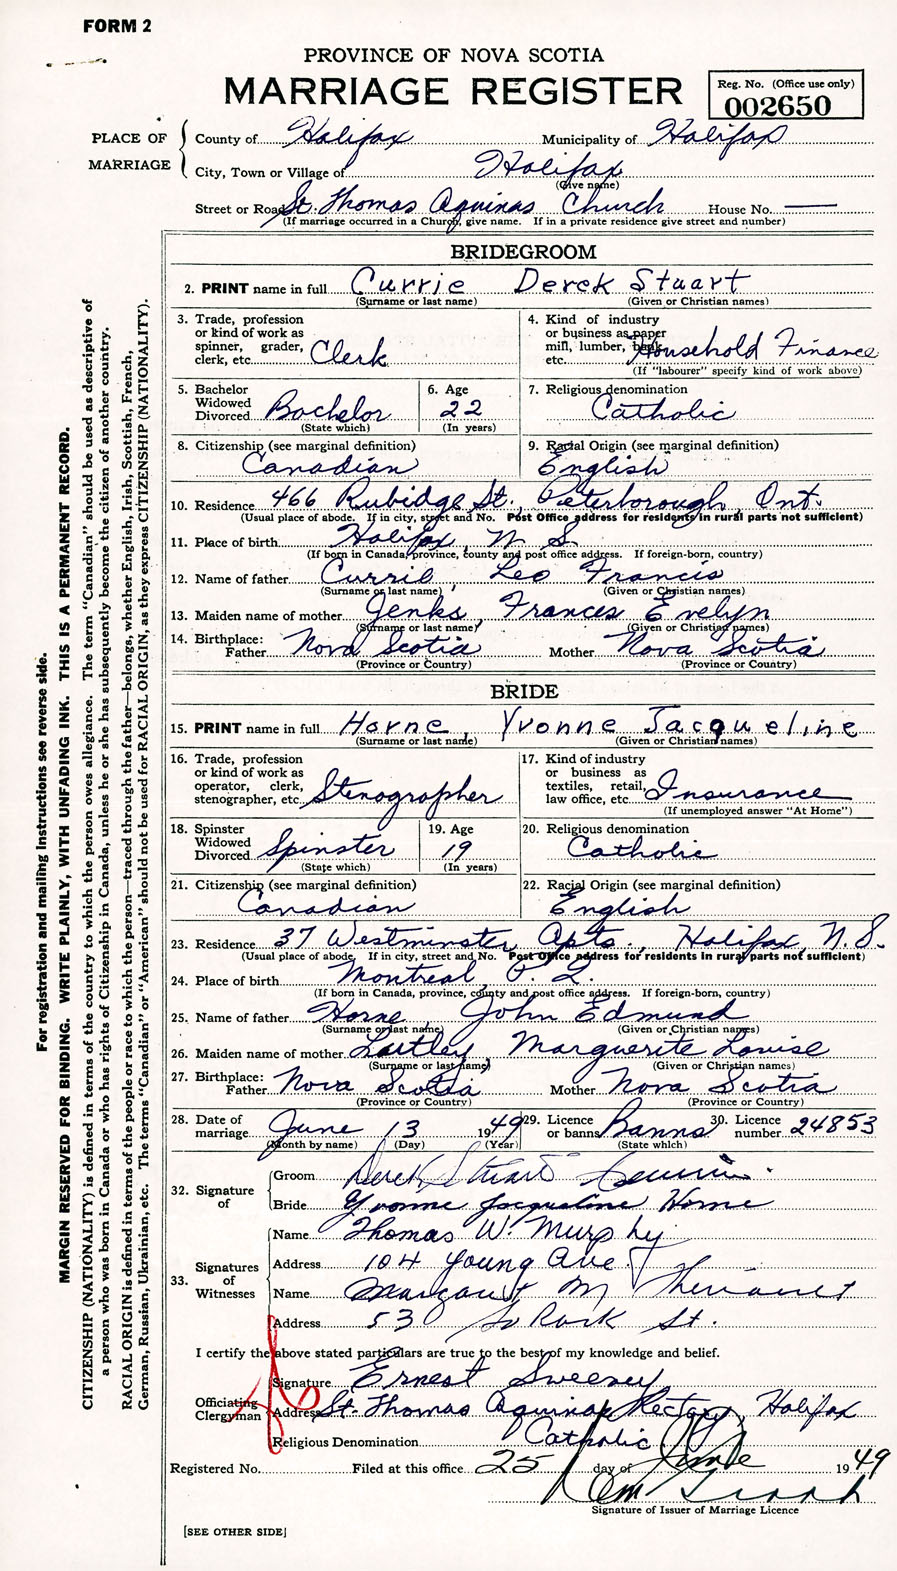 FORM 2
PROVINCE OF NOVA SCOTIA
MARRIAGE REGISTER
Reg. No. (Office use only)
002650
PLACE OF MARRIAGE
County of Halifax Municipality of Halifax
City, Town or Village of Halifax
(Give name)
Street or Road St. Thomas Aquinas Church House No. —
(If marriage occurred in a Church, give name. If in a private residence give street and number)
BRIDEGROOM
2. PRINT name in full Currie Derek Stuart
(Surname or last name) (Given or Christian names)
3. Trade, profession or kind of work as spinner, grader, clerk, etc. Clerk
4. Kind of industry or business as paper mill, lumber, bank, etc. Household Finance
(If "labourer" specify kind of work above)
5. Bachelor Widowed Divorced Bachelor
(State which)
6. Age 22
(In years)
7. Religious denomination Catholic
8. Citizenship (see marginal definition) Canadian
9. Racial Origin (see marginal definition) English
10. Residence 466 Rubidge St., Peterborough, Ont.
(Usual place of abode. If in city, street and No. Post Office address for residents in rural parts not sufficient)
11. Place of birth Halifax, N.S.
(If born in Canada, province, county and post office address. If foreign-born, country)
12. Name of father Currie, Leo Francis
(Surname or last name) (Given or Christian names)
13. Maiden name of mother Jenks, Frances Evelyn
(Surname or last name) (Given or Christian names)
14. Birthplace: Father Nova Scotia Mother Nova Scotia
(Province or Country) (Province or Country)
BRIDE
15. PRINT name in full Horne, Yvonne Jacqueline
(Surname or last name) (Given or Christian names)
16. Trade, profession or kind of work as operator, clerk, stenographer, etc. Stenographer
17. Kind of industry or business as textiles, retail, law office, etc. Insurance
(If unemployed answer "At Home")
18. Spinster Widowed Divorced Spinster
(State which)
19. Age 19
(In years)
20. Religious denomination Catholic
21. Citizenship (see marginal definition) Canadian
22. Racial Origin (see marginal definition) English
23. Residence 37 Westminster Apts., Halifax, N.S.
(Usual place of abode. If in city, street and No. Post Office address for residents in rural parts not sufficient)
24. Place of birth Montreal, P. Q.
(If born in Canada, province, county and post office address. If foreign-born, country)
25. Name of father Horne, John Edmund
(Surname or last name) (Given or Christian names)
26. Maiden name of mother Marguerite Louise
(Surname or last name) (Given or Christian names)
27. Birthplace: Father Nova Scotia Mother Nova Scotia
(Province or Country) (Province or Country)
28. Date of marriage June 13 1949
(Month by name) (Day) (Year)
29. Licence or banns Banns
(State which)
30. Licence number 24853
32. Signature of
Groom Derek Stuart Currie
Bride Yvonne Jacqueline Horne
33. Signatures of Witnesses
Name Thomas W. Murphy
Address 104 Young Ave.
Name Margaret M Theriault
Address 53 Park St.
I certify the above stated particulars are true to the best of my knowledge and belief.
Officiating Clergyman
Signature Ernest Sweeney
Address St. Thomas Aquinas Rectory, Halifax
Religious Denomination Catholic
Registered No. Filed at this office 25 day of June 1949
Signature of Issuer of Marriage Licence
[SEE OTHER SIDE]
For registration and mailing instructions see reverse side.
MARGIN RESERVED FOR BINDING. WRITE PLAINLY, WITH UNFADING INK. THIS IS A PERMANENT RECORD.
CITIZENSHIP (NATIONALITY) is defined in terms of the country to which the person owes allegiance. The term "Canadian" should be used as descriptive of
a person who was born in Canada or who has rights of Citizenship in Canada, unless he or she has subsequently become the citizen of another country.
RACIAL ORIGIN is defined in terms of the people or race to which the person—traced through the father—belongs, whether English, Irish, Scottish, French,
German, Russian, Ukrainian, etc. The terms "Canadian" or "American" should not be used for RACIAL ORIGIN, as they express CITIZENSHIP (NATIONALITY).